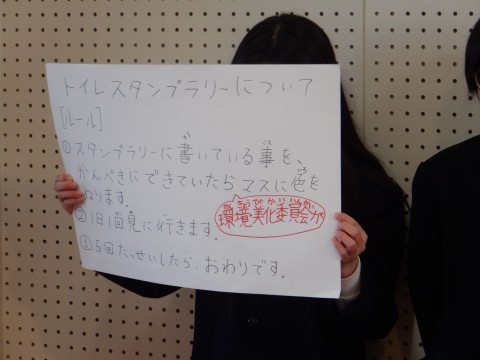 トイレスタンプラリーについて
[ルール]
①スタンプラリーに書いている事を、
かんぺきにできていたらマスに色を
ぬります。
環境美化委員会が
②1日1回見に行きます。
③5回たっせいしたら、おわりです。